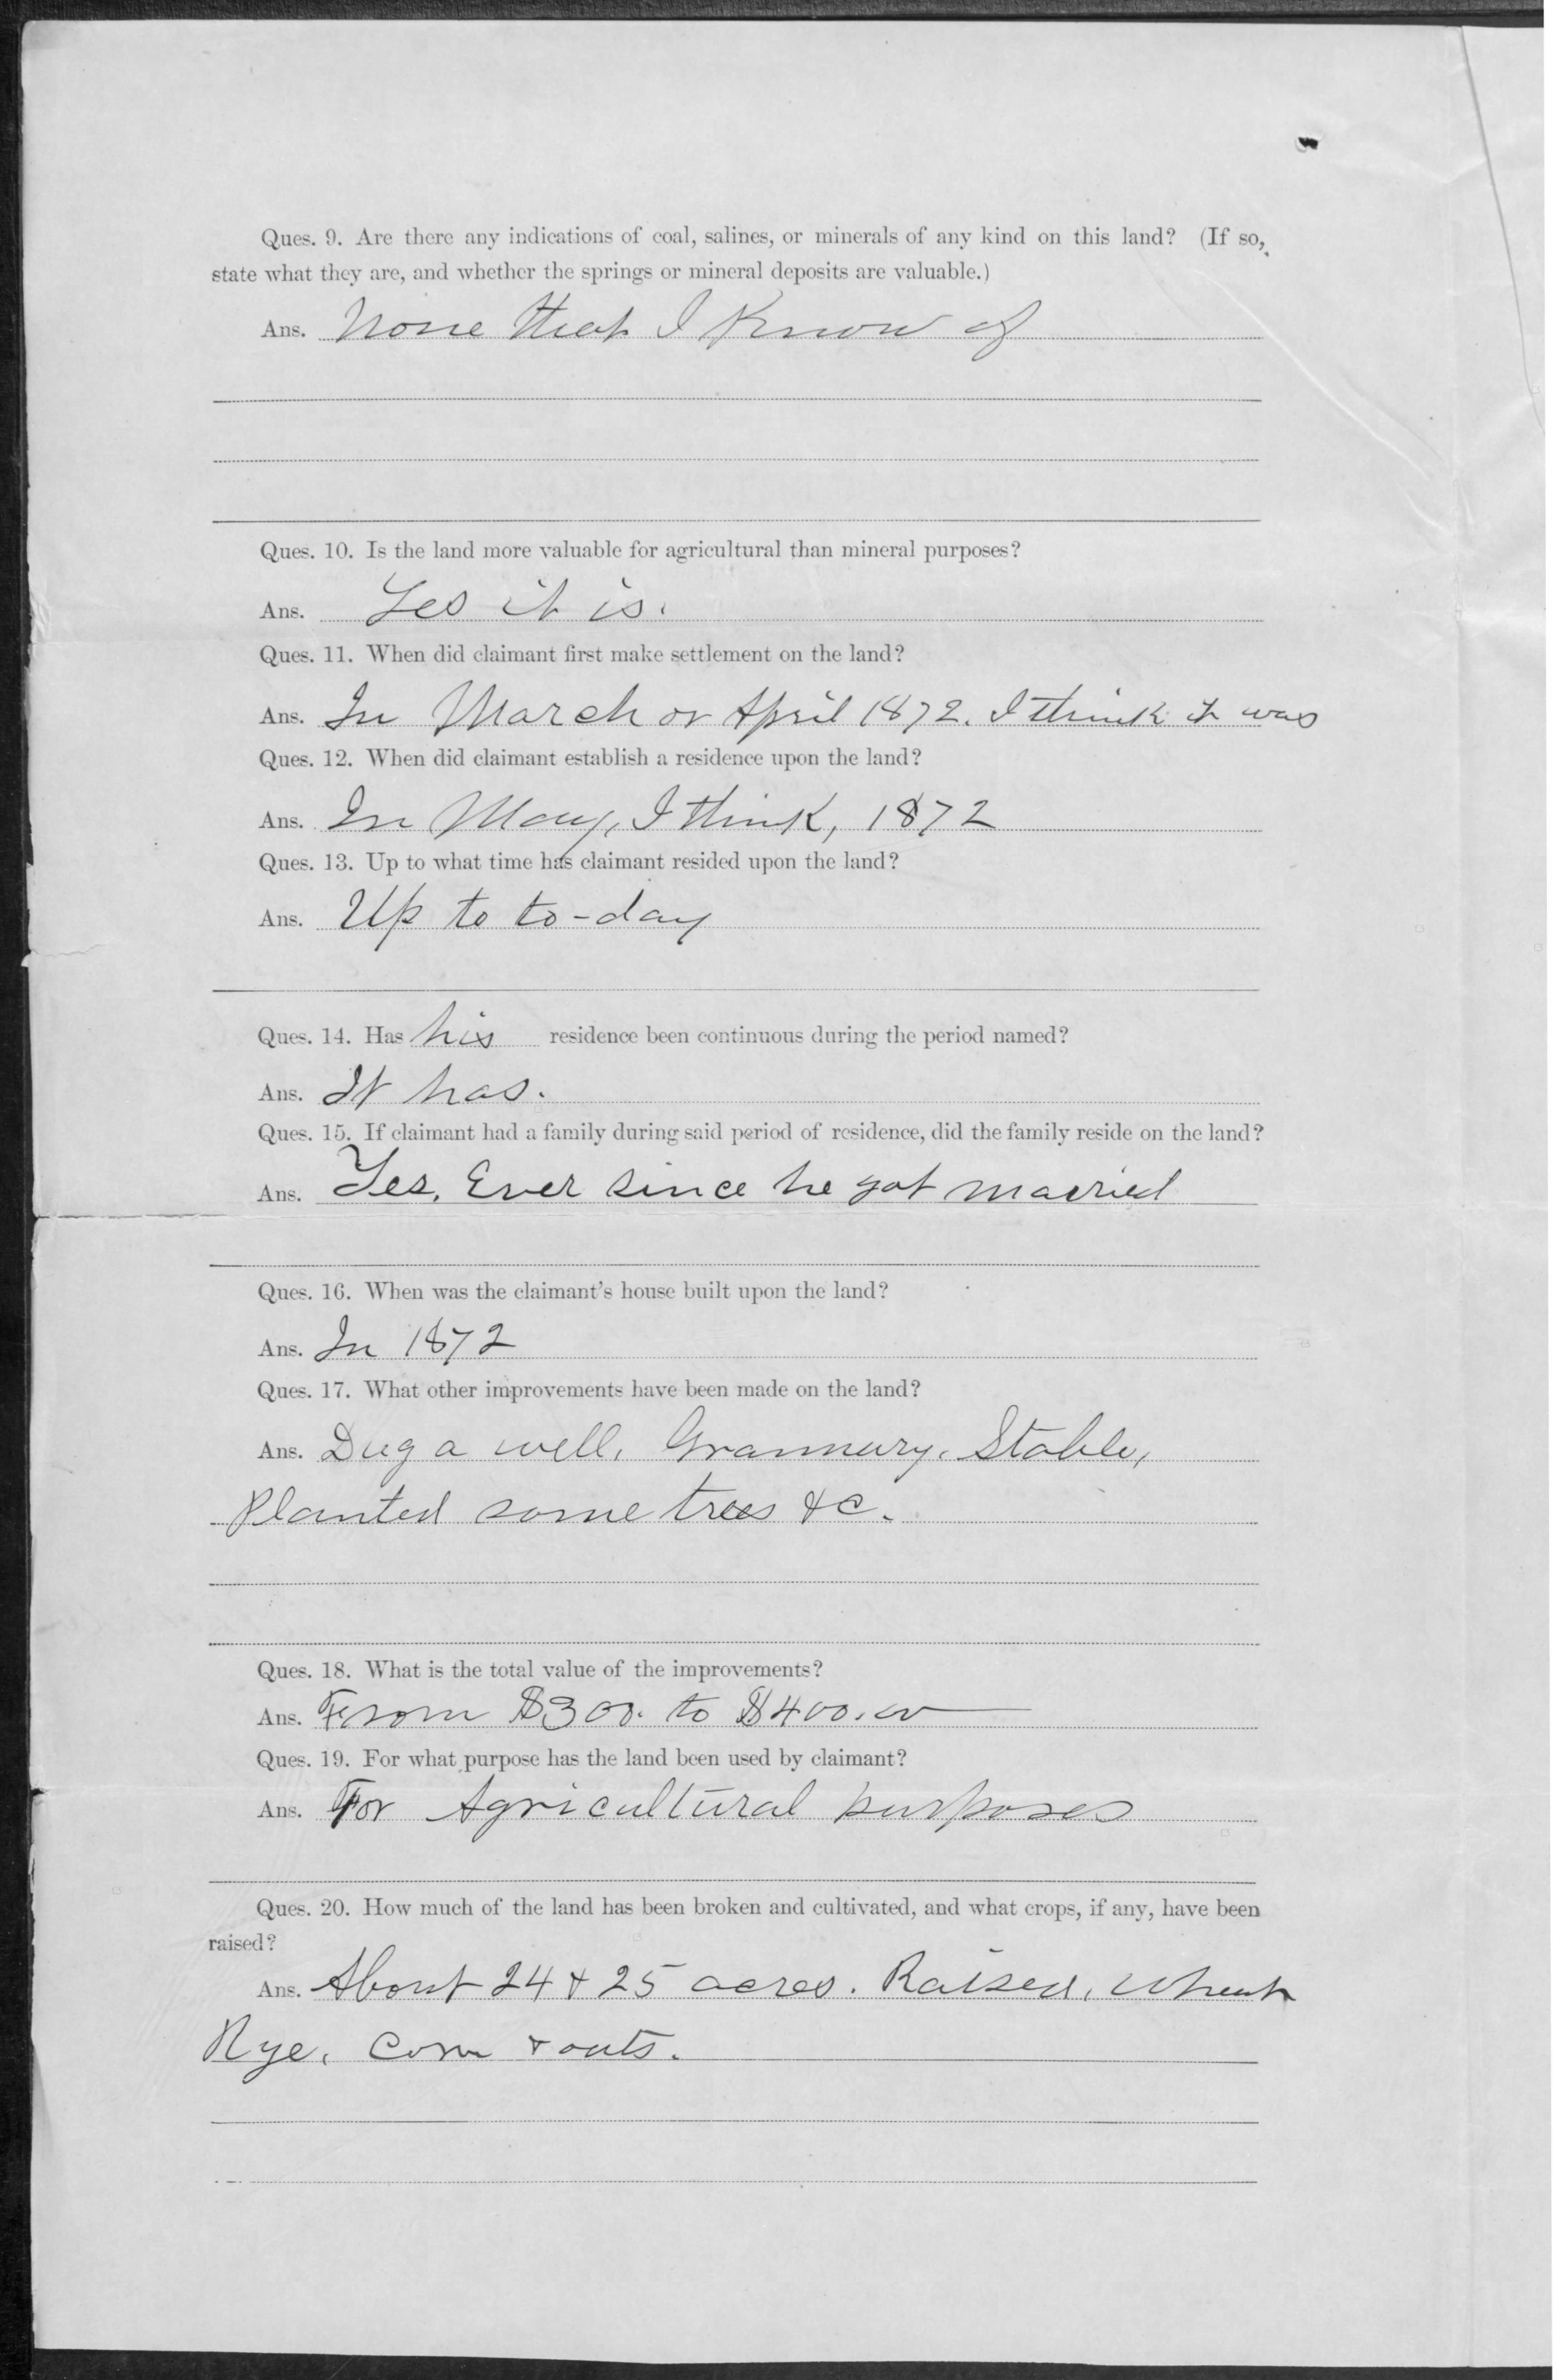 Ques. 9. Are there any indications of coal, salines, or minerals of any kind on this land? (If so,
state what they are, and whether the springs or mineral deposits are valuable.)
Ans. None that I Know of
Ques. 10. Is the land more valuable for agricultural than mineral purposes?
Ans. Yes it is.
Ques. 11. When did claimant first make settlement on the land?
Ans. In March or April 1872. I think it was
Ques. 12. When did claimant establish a residence upon the land?
Ans. In May, I think, 1872
Ques. 13. Up to what time has claimant resided upon the land?
Ans. Up to to-day
Ques. 14. Has his residence been continuous during the period named?
Ans. It has.
Ques. 15. If claimant had a family during said period of residence, did the family reside on the land?
Ans. Yes. Ever since he got married
Ques. 16. When was the claimant's house built upon the land?
Ans. In 1872
Ques. 17. What other improvements have been made on the land?
Ans. Dug a well. Grannury. Stable,
Planted some trees &c.
Ques. 18. What is the total value of the improvements?
Ans. From $300. to $400.00
Ques. 19. For what purpose has the land been used by claimant?
Ans. For Agricultural purposes
Ques. 20. How much of the land has been broken and cultivated, and what crops, if any, have been
raised?
Ans. About 24 & 25 acres. Raised, Wheat
Rye. Corn & oats.